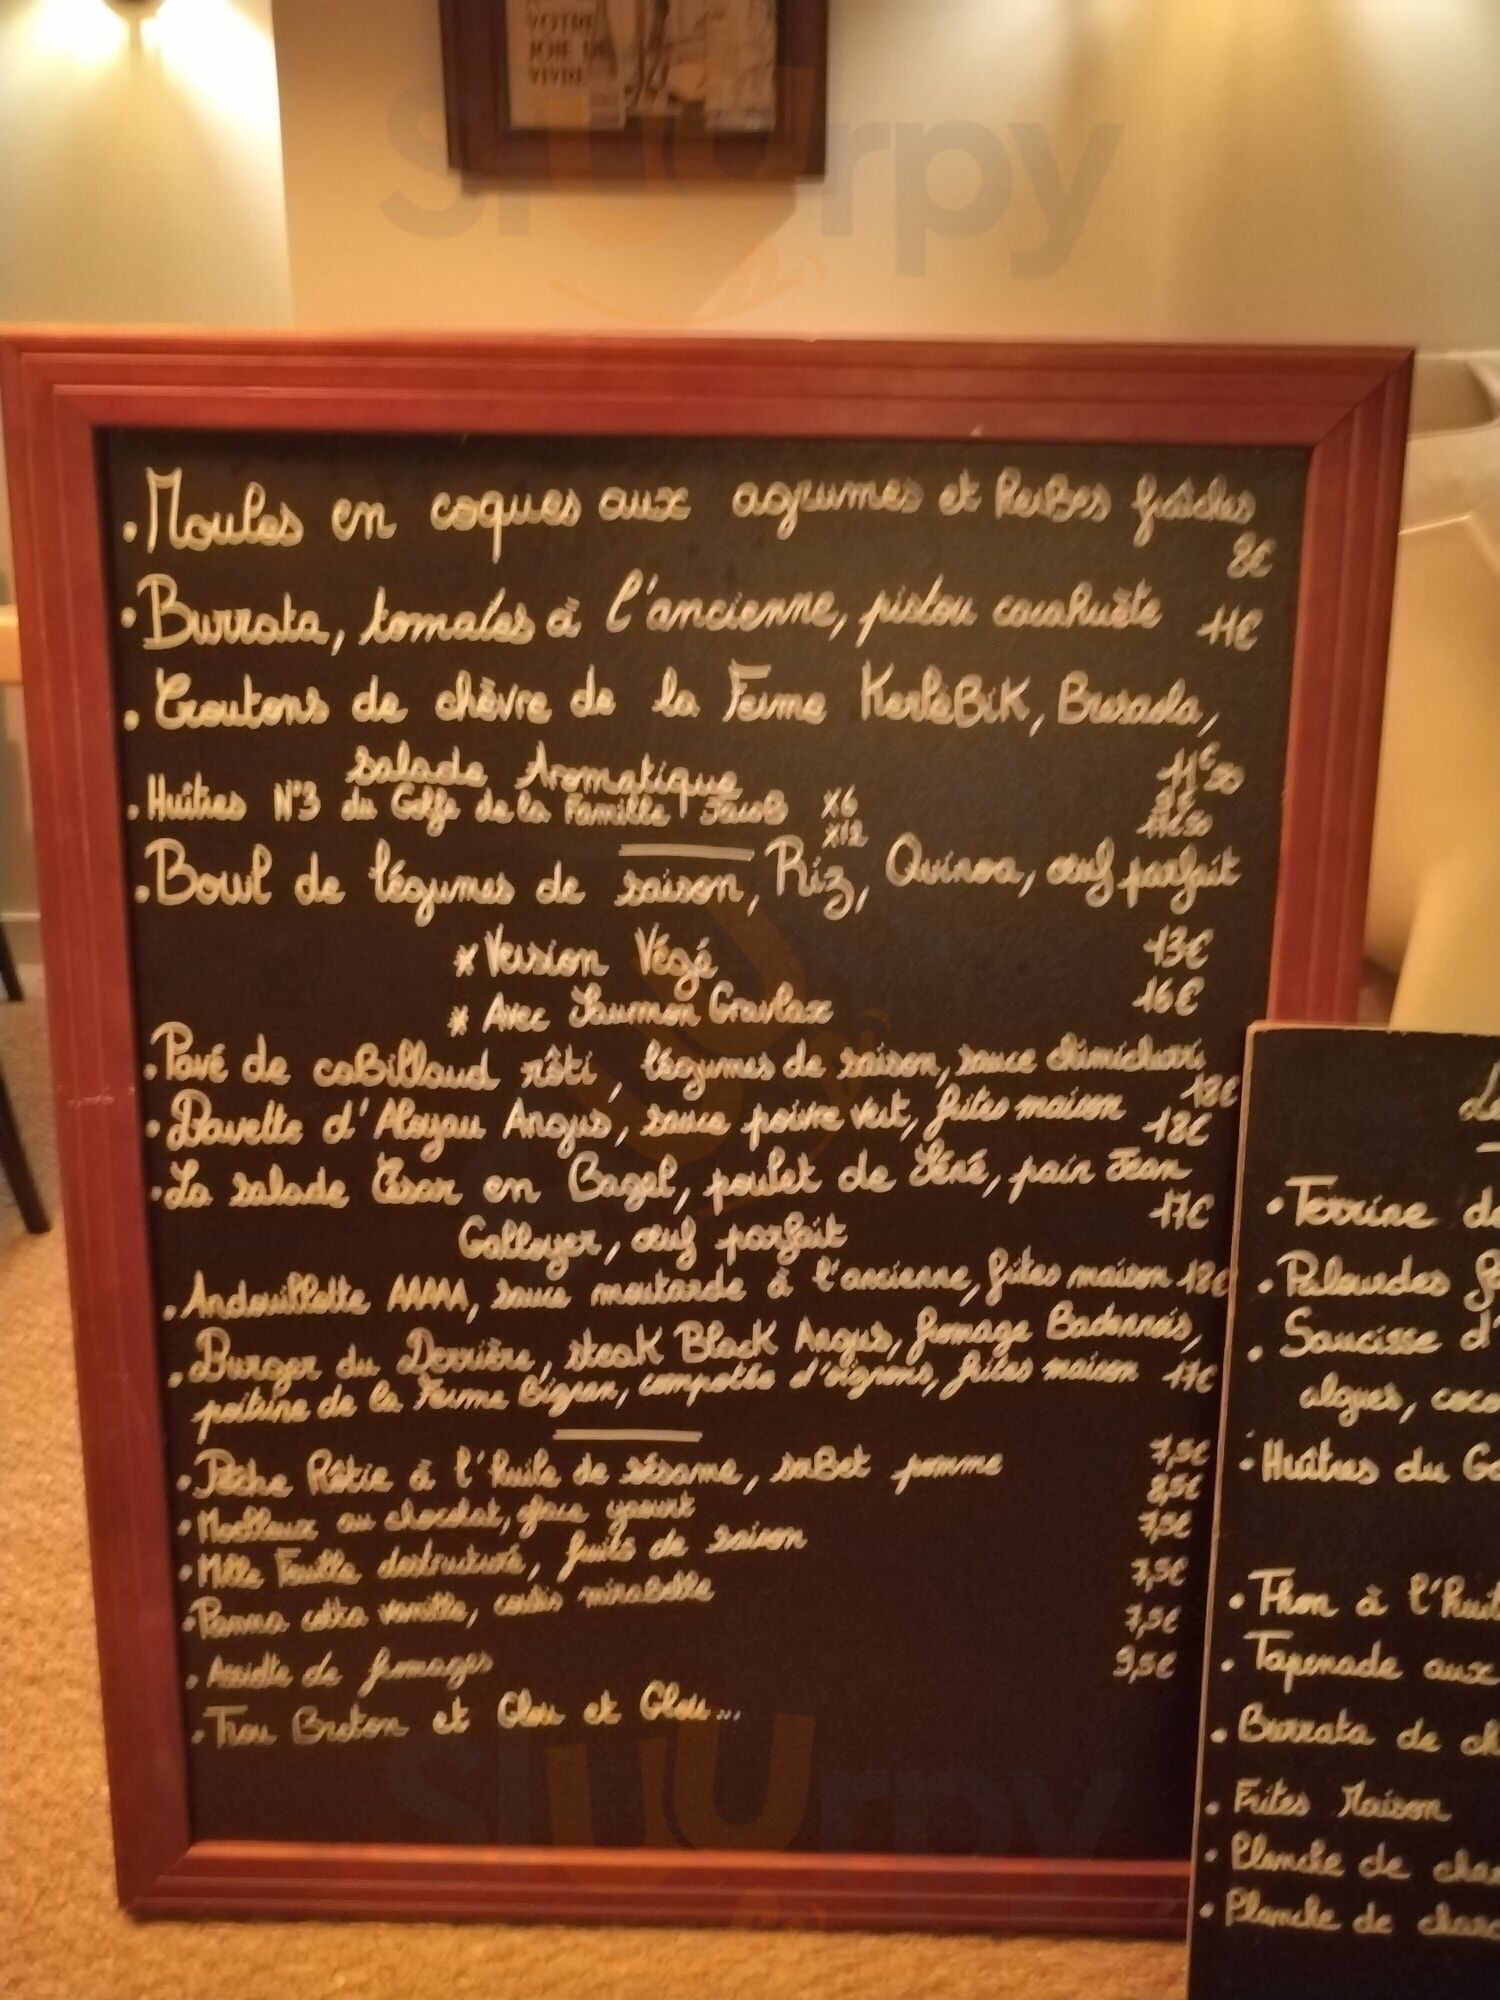 VOTRE
JOIE DE
VIVRE
Sluurpy
• Moules en coques aux agrumes et herbes fraîches
8€
• Burrata, tomates à l'ancienne, pistou cacahuète 11€
• Croutons de chèvre de la Ferme KerléBiK, Bresaola,
Salade Aromatique 11€50
• Huîtres N°3 du Golfe de la Famille JacoB X6 9€
X12 17€50
• Bowl de légumes de saison, Riz, Quinoa, œuf parfait
* Version Végé 13€
* Avec Saumon Gravlax 16€
• Pavé de caBillaud rôti, légumes de saison, sauce chimichurri
18€
• Bavette d'Aloyau Angus, sauce poivre vert, frites maison 18€
• La salade César en Bagel, poulet de Séné, pain Jean
Galloyer, œuf parfait 17€
• Andouillette AAAAA, sauce moutarde à l'ancienne, frites maison 18€
• Burger du Derrière, steak Black Angus, fromage Badennois,
poitrine de la Ferme Bignan, compotée d'oignons, frites maison 17€
• Pêche Rôtie à l'huile de sésame, sorBet pomme 7,5€
• Moelleux au chocolat, glace yaourt 8,5€
• Mille Feuille destructuré, fruits de saison 7,5€
• Panna cotta vanille, coulis mirabelle 7,5€
• Assiette de fromages 7,5€
• Trou Breton et Glou et Glou... 9,5€
• Terrine de
• Palourdes
• Saucisse d'
algues, coco
• Huîtres du Go
• Thon à l'huil
• Tapenade aux
• Burrata de ch
• Frites Maison
• Planche de cha
• Planche de charc
Sluurpy